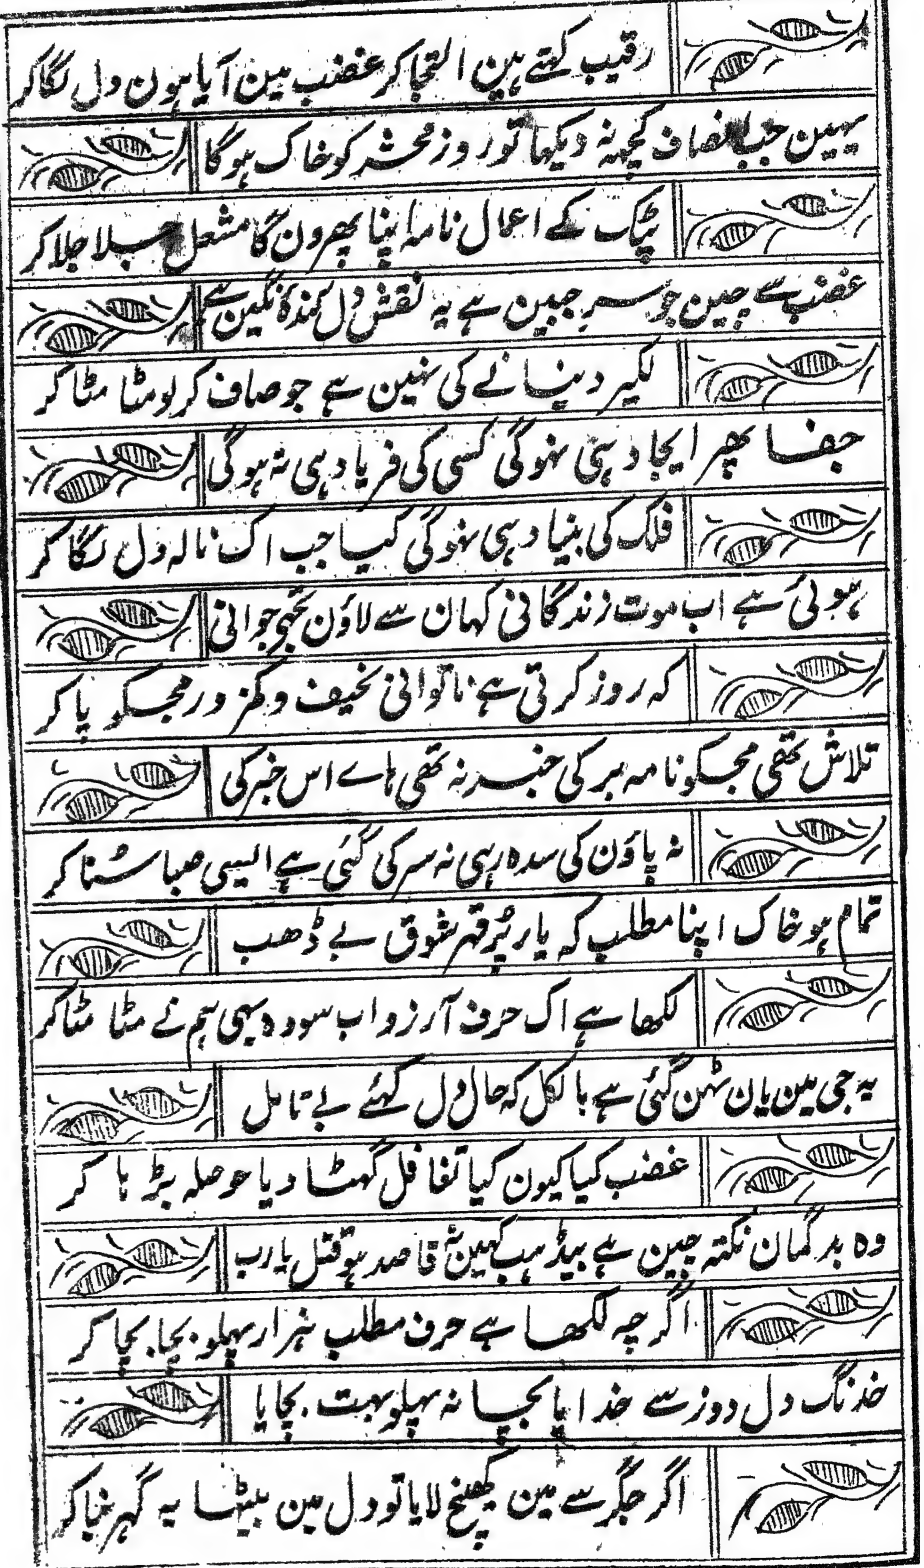 رقیب کہتے ہین التجا کر غضب مین آیا ہون دل لگا کر
یہین جب انصاف کچہہ نہ دیکہا تو روز محشر کو خاک ہوگا
پٹک کے اعمال نامہ اپنا پھرون گا مشعل جلا جلا کر
غضب سے چین جو سرِ جبین ہے یہ نقش دل کندۂ نگین ہے
لکیر دینا نے کی نہین ہے جو صاف کر لو مٹا مٹا کر
جفا پھر ایجاد ہی نہوگی کسی کی فریاد ہی نہ ہوگی
فلک کی بنیاد ہی نہوگی کیا جب اک نالہ دل لگا کر
ہوئی ہے اب موت زندگانی کہان سے لاؤن تجھے جوانی
کہ روز کرتی ہے ناتوانی نحیف و کمزور مجکو پا کر
تلاش تھی مجکو نامہ بر کی خبر نہ تھی ہاے اس خبر کی
نہ پاؤن کی سدہ رہی نہ سر کی گئی ہے ایسی صبا سنا کر
تمام ہو خاک اپنا مطلب کہ یار پُر قہر شوق بے ڈھب
لکھا ہے اک حرف آرزو اب سو وہ بہی ہم نے مٹا مٹا کر
یہ جی مین یان ٹہن گئی ہے بالکل کہ حال دل کہئے بے تامل
غضب کیا کیون کیا تغافل گہٹا دیا حوصلہ بڑہا کر
وہ بدگمان نکتہ چین ہے بیڈہب کہین نہ قاصد ہو قتل یارب
اگرچہ لکھا ہے حرف مطلب ہزار پہلو بچا بچا کر
خدنگ دل دوز سے خدایا بچا نہ پہلو بہت بچایا
اگر جگر سے مین کھینچ لایا تو دل مین بیٹہا یہ گہر بنا کر